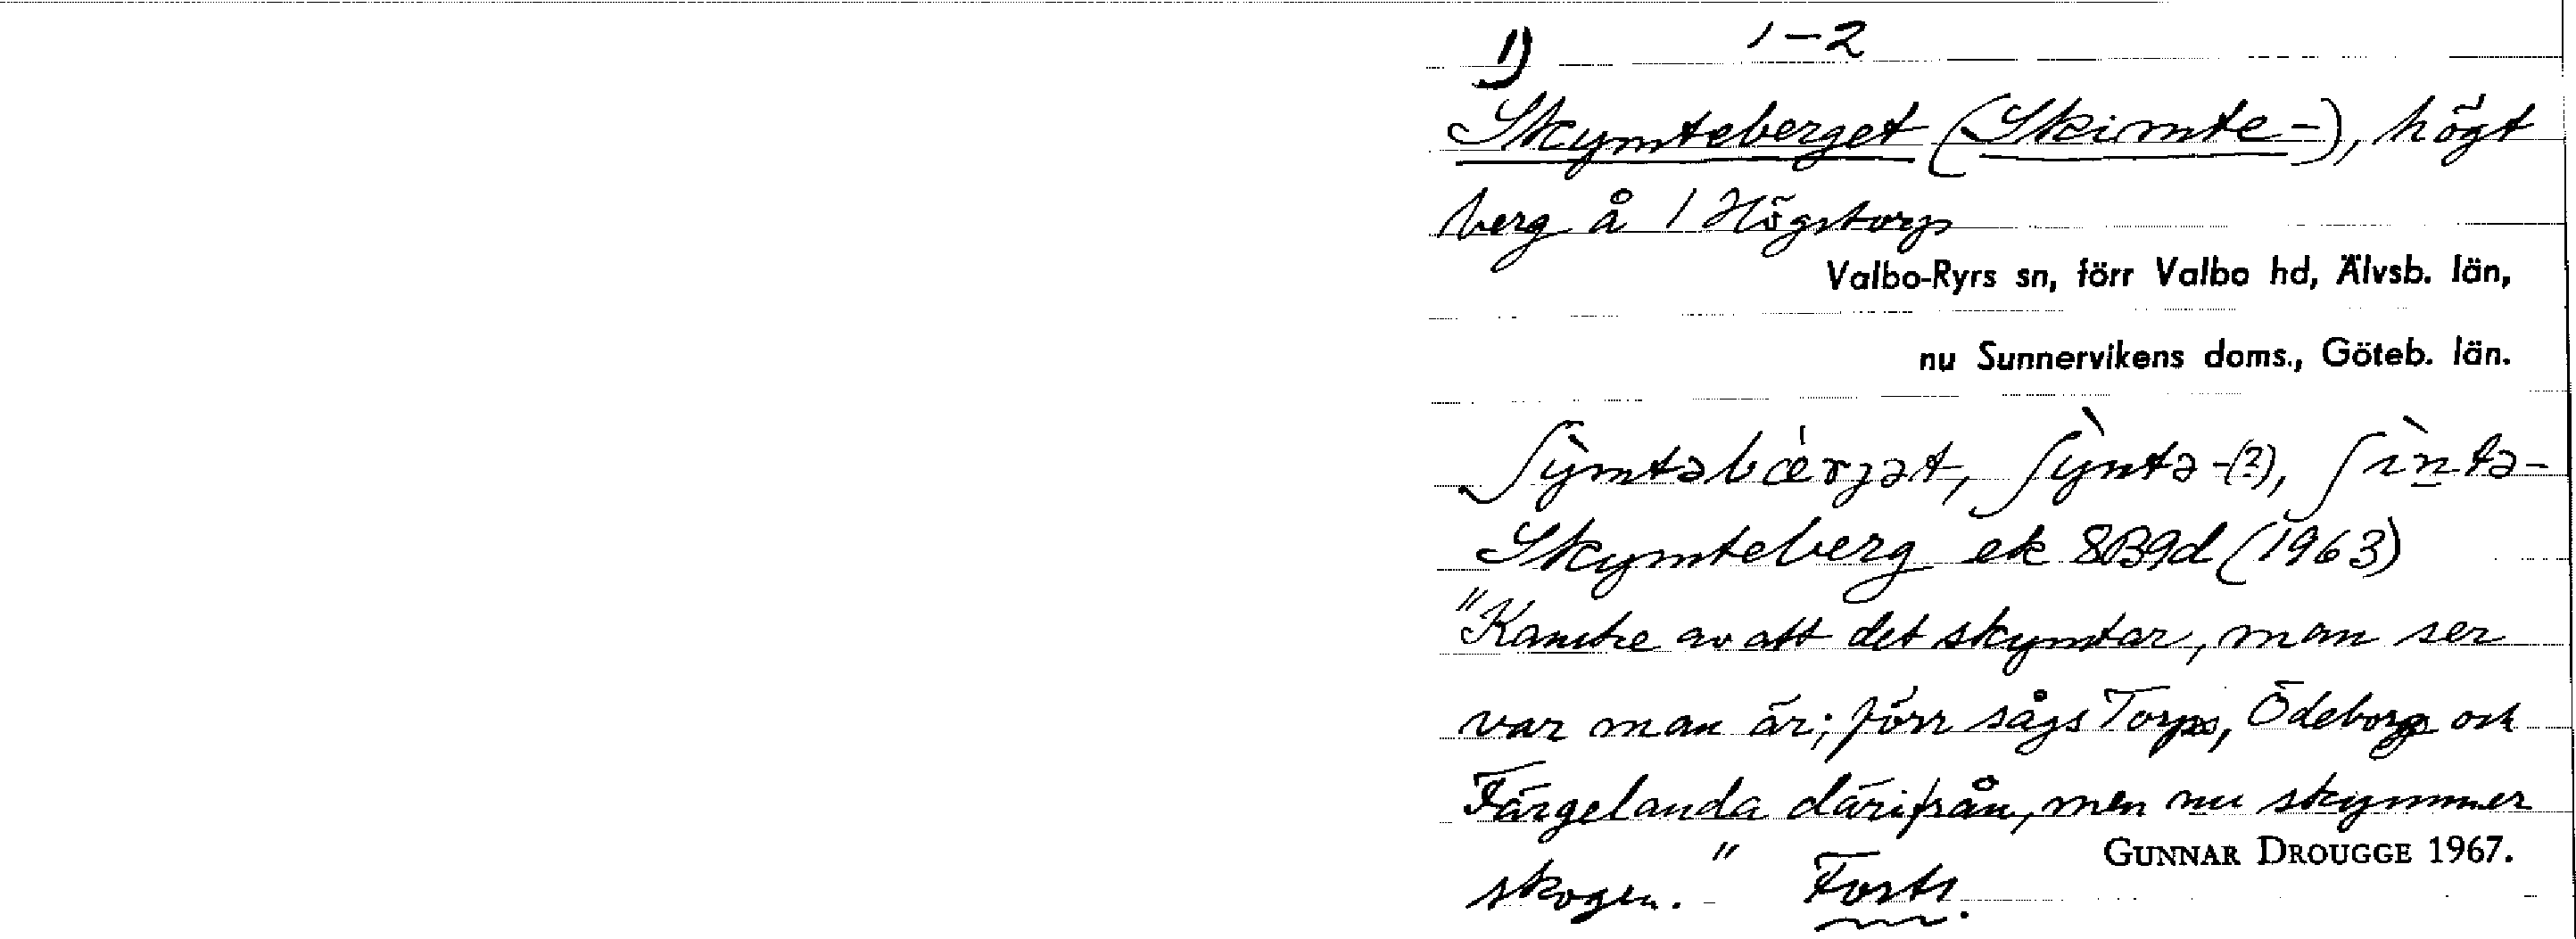 1) 1-2
Skymteberget (Skimte-), högt
berg å 1 Högstorp
Valbo-Ryrs sn, förr Valbo hd, Älvsb. län,
nu Sunnervikens doms., Göteb. län.
ʃỳmtəbæ̀rjət, ʃỳntə-(?), ʃìntə-
Skymteberg ek 8B9d (1963)
"Kanske av att det skymtar, man ser
var man är; förr sågs Torps, Ödeborgs och
Färgelanda därifrån, men nu skymmer
GUNNAR DROUGGE 1967.
skogen." Forts.